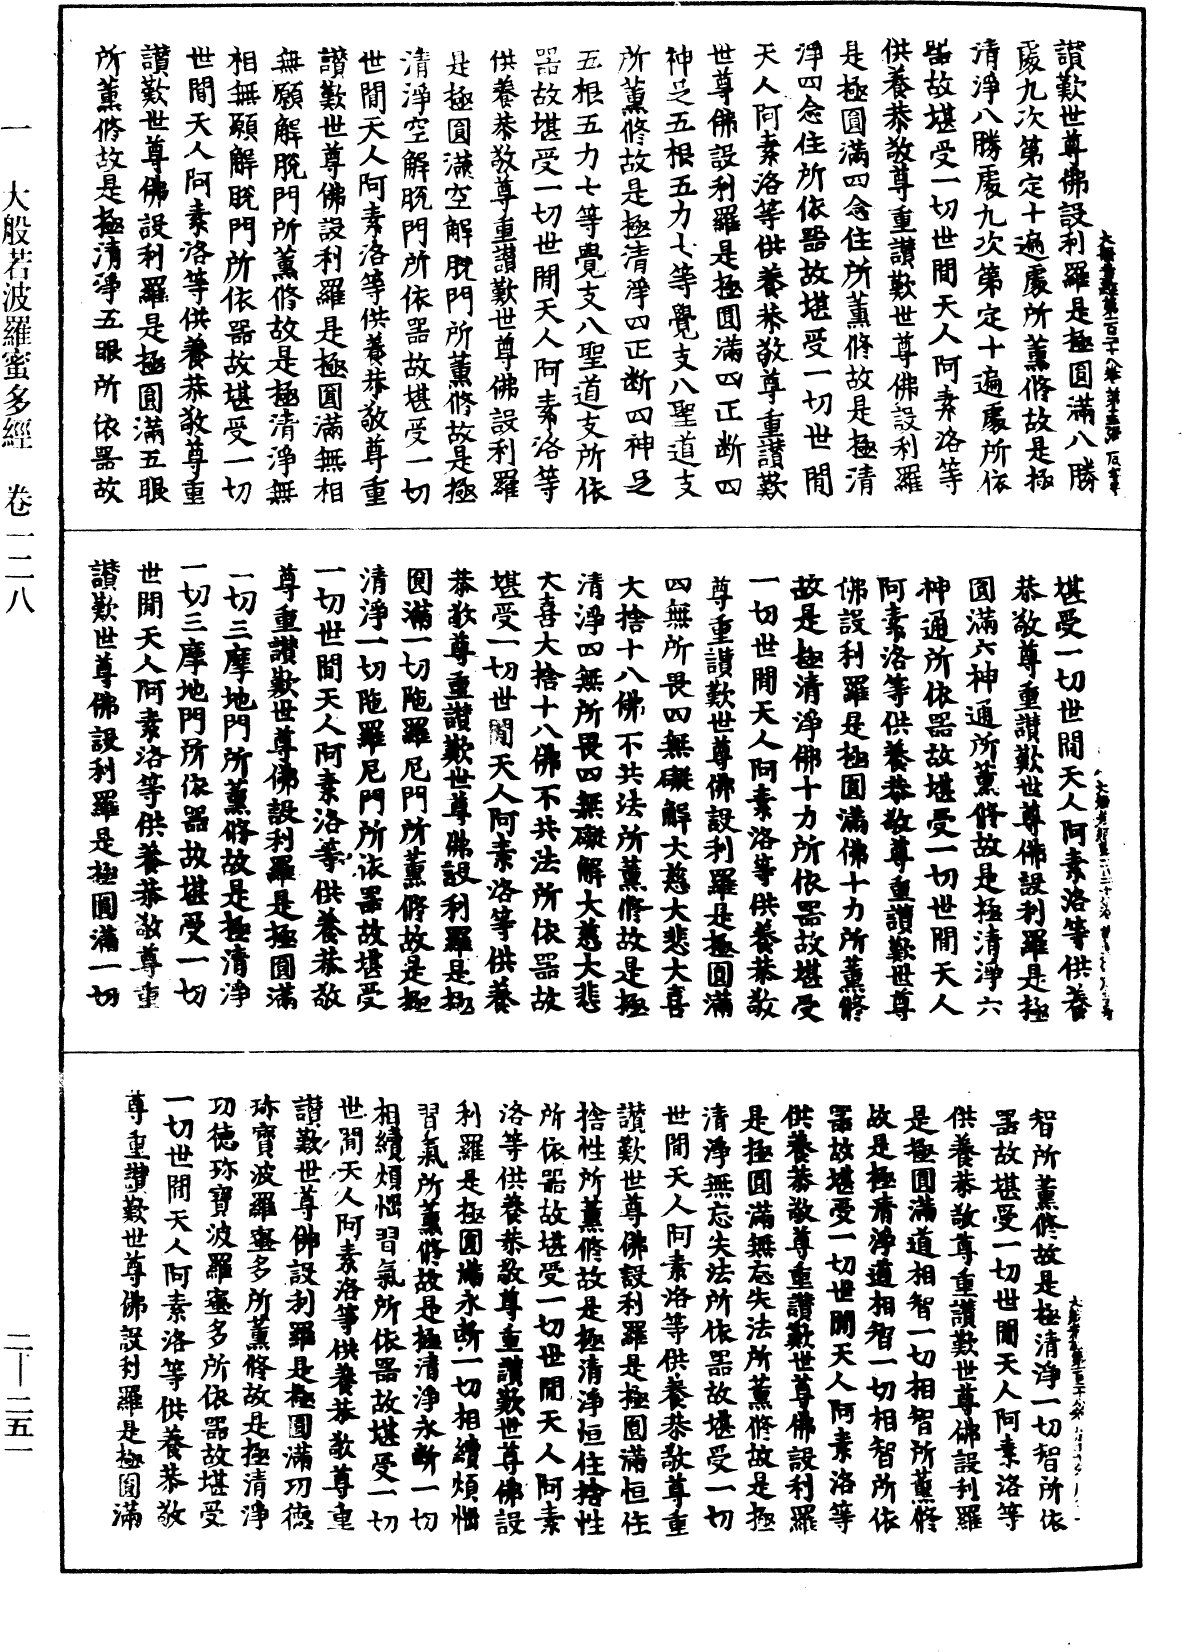 讃歎世尊佛設利羅是極圓滿八勝
處九次第定十遍處所薰修故是極
清淨八勝處九次第定十遍處所依
器故堪受一切世間天人阿素洛等
供養恭敬尊重讃歎世尊佛設利羅
是極圓滿四念住所薰修故是極清
淨四念住所依器故堪受一切世間
天人阿素洛等供養恭敬尊重讃歎
世尊佛設利羅是極圓滿四正断四
神足五根五力七等覺支八聖道支
所薰修故是極清淨四正断四神足
五根五力七等覺支八聖道支所依
器故堪受一切世間天人阿素洛等
供養恭敬尊重讃歎世尊佛設利羅
是極圓滿空解脫門所薰修故是極
清淨空解脫門所依器故堪受一切
世間天人阿素洛等供養恭敬尊重
讃歎世尊佛設利羅是極圓滿無相
無願解脫門所薰修故是極清淨無
相無願解脫門所依器故堪受一切
世間天人阿素洛等供養恭敬尊重
讃歎世尊佛設利羅是極圓滿五眼
所薰修故是極清淨五眼所依器故
堪受一切世間天人阿素洛等供養
恭敬尊重讃歎世尊佛設利羅是極
圓滿六神通所薰修故是極清淨六
神通所依器故堪受一切世間天人
阿素洛等供養恭敬尊重讃歎世尊
佛設利羅是極圓滿佛十力所薰修
故是極清淨佛十力所依器故堪受
一切世間天人阿素洛等供養恭敬
尊重讃歎世尊佛設利羅是極圓滿
四無所畏四無礙解大慈大悲大喜
大捨十八佛不共法所薰修故是極
清淨四無所畏四無礙解大慈大悲
大喜大捨十八佛不共法所依器故
堪受一切世間天人阿素洛等供養
恭敬尊重讃歎世尊佛設利羅是極
圓滿一切陁羅尼門所薰修故是極
清淨一切陁羅尼門所依器故堪受
一切世間天人阿素洛等供養恭敬
尊重讃歎世尊佛設利羅是極圓滿
一切三摩地門所薰修故是極清淨
一切三摩地門所依器故堪受一切
世間天人阿素洛等供養恭敬尊重
讃歎世尊佛設利羅是極圓滿一切
智所薰修故是極清淨一切智所依
器故堪受一切世間天人阿素洛等
供養恭敬尊重讃歎世尊佛設利羅
是極圓滿道相智一切相智所薰修
故是極清淨道相智一切相智所依
器故堪受一切世間天人阿素洛等
供養恭敬尊重讃歎世尊佛設利羅
是極圓滿無忘失法所薰修故是極
清淨無忘失法所依器故堪受一切
世間天人阿素洛等供養恭敬尊重
讃歎世尊佛設利羅是極圓滿恒住
捨性所薰修故是極清淨恒住捨性
所依器故堪受一切世間天人阿素
洛等供養恭敬尊重讃歎世尊佛設
利羅是極圓滿永断一切相續煩惱
習氣所薰修故是極清淨永断一切
相續煩惱習氣所依器故堪受一切
世間天人阿素洛等供養恭敬尊重
讃歎世尊佛設利羅是極圓滿功德
珎寶波羅蜜多所薰修故是極清淨
功德珎寶波羅蜜多所依器故堪受
一切世間天人阿素洛等供養恭敬
尊重讃歎世尊佛設利羅是極圓滿
一 大般若波羅蜜多經 卷一二八
二—二五一